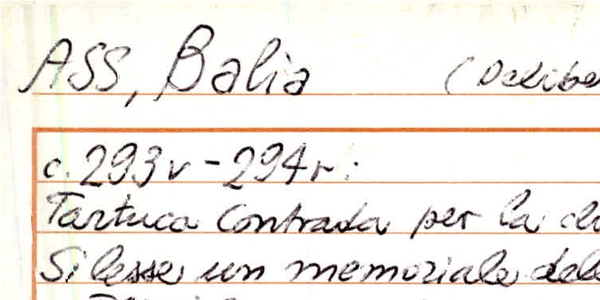 ASS, Balia (Deliber
c. 293v - 294r:
Tartuca Contrada per la
Si lesse un memoriale del